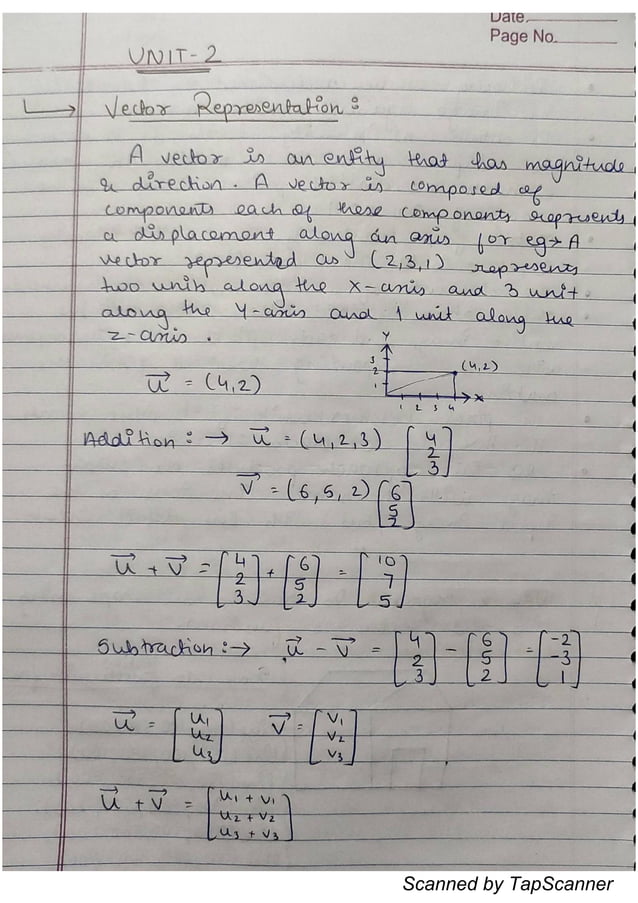 Date.
Page No.
UNIT-2
Vector Representation:
A vector is an entity that has magnitude
& direction. A vector is composed of
components each of these components represents
a displacement along an axis for eg→ A
vector represented as (2,3,1) represents
two units along the X-axis and 3 unit
along the Y-axis and 1 unit along the
z-axis.
Y
3
2
1
(4,2)
1 2 3 4 X
u⃗ = (4,2)
Addition: → u⃗ = (4,2,3) [4 2 3]
v⃗ = (6,5,2) [6 5 2]
u⃗ + v⃗ = [4 2 3] + [6 5 2] = [10 7 5]
Subtraction: → u⃗ - v⃗ = [4 2 3] - [6 5 2] = [-2 -3 1]
u⃗ = [u₁ u₂ u₃] v⃗ = [v₁ v₂ v₃]
u⃗ + v⃗ = [u₁ + v₁ u₂ + v₂ u₃ + v₃]
Scanned by TapScanner